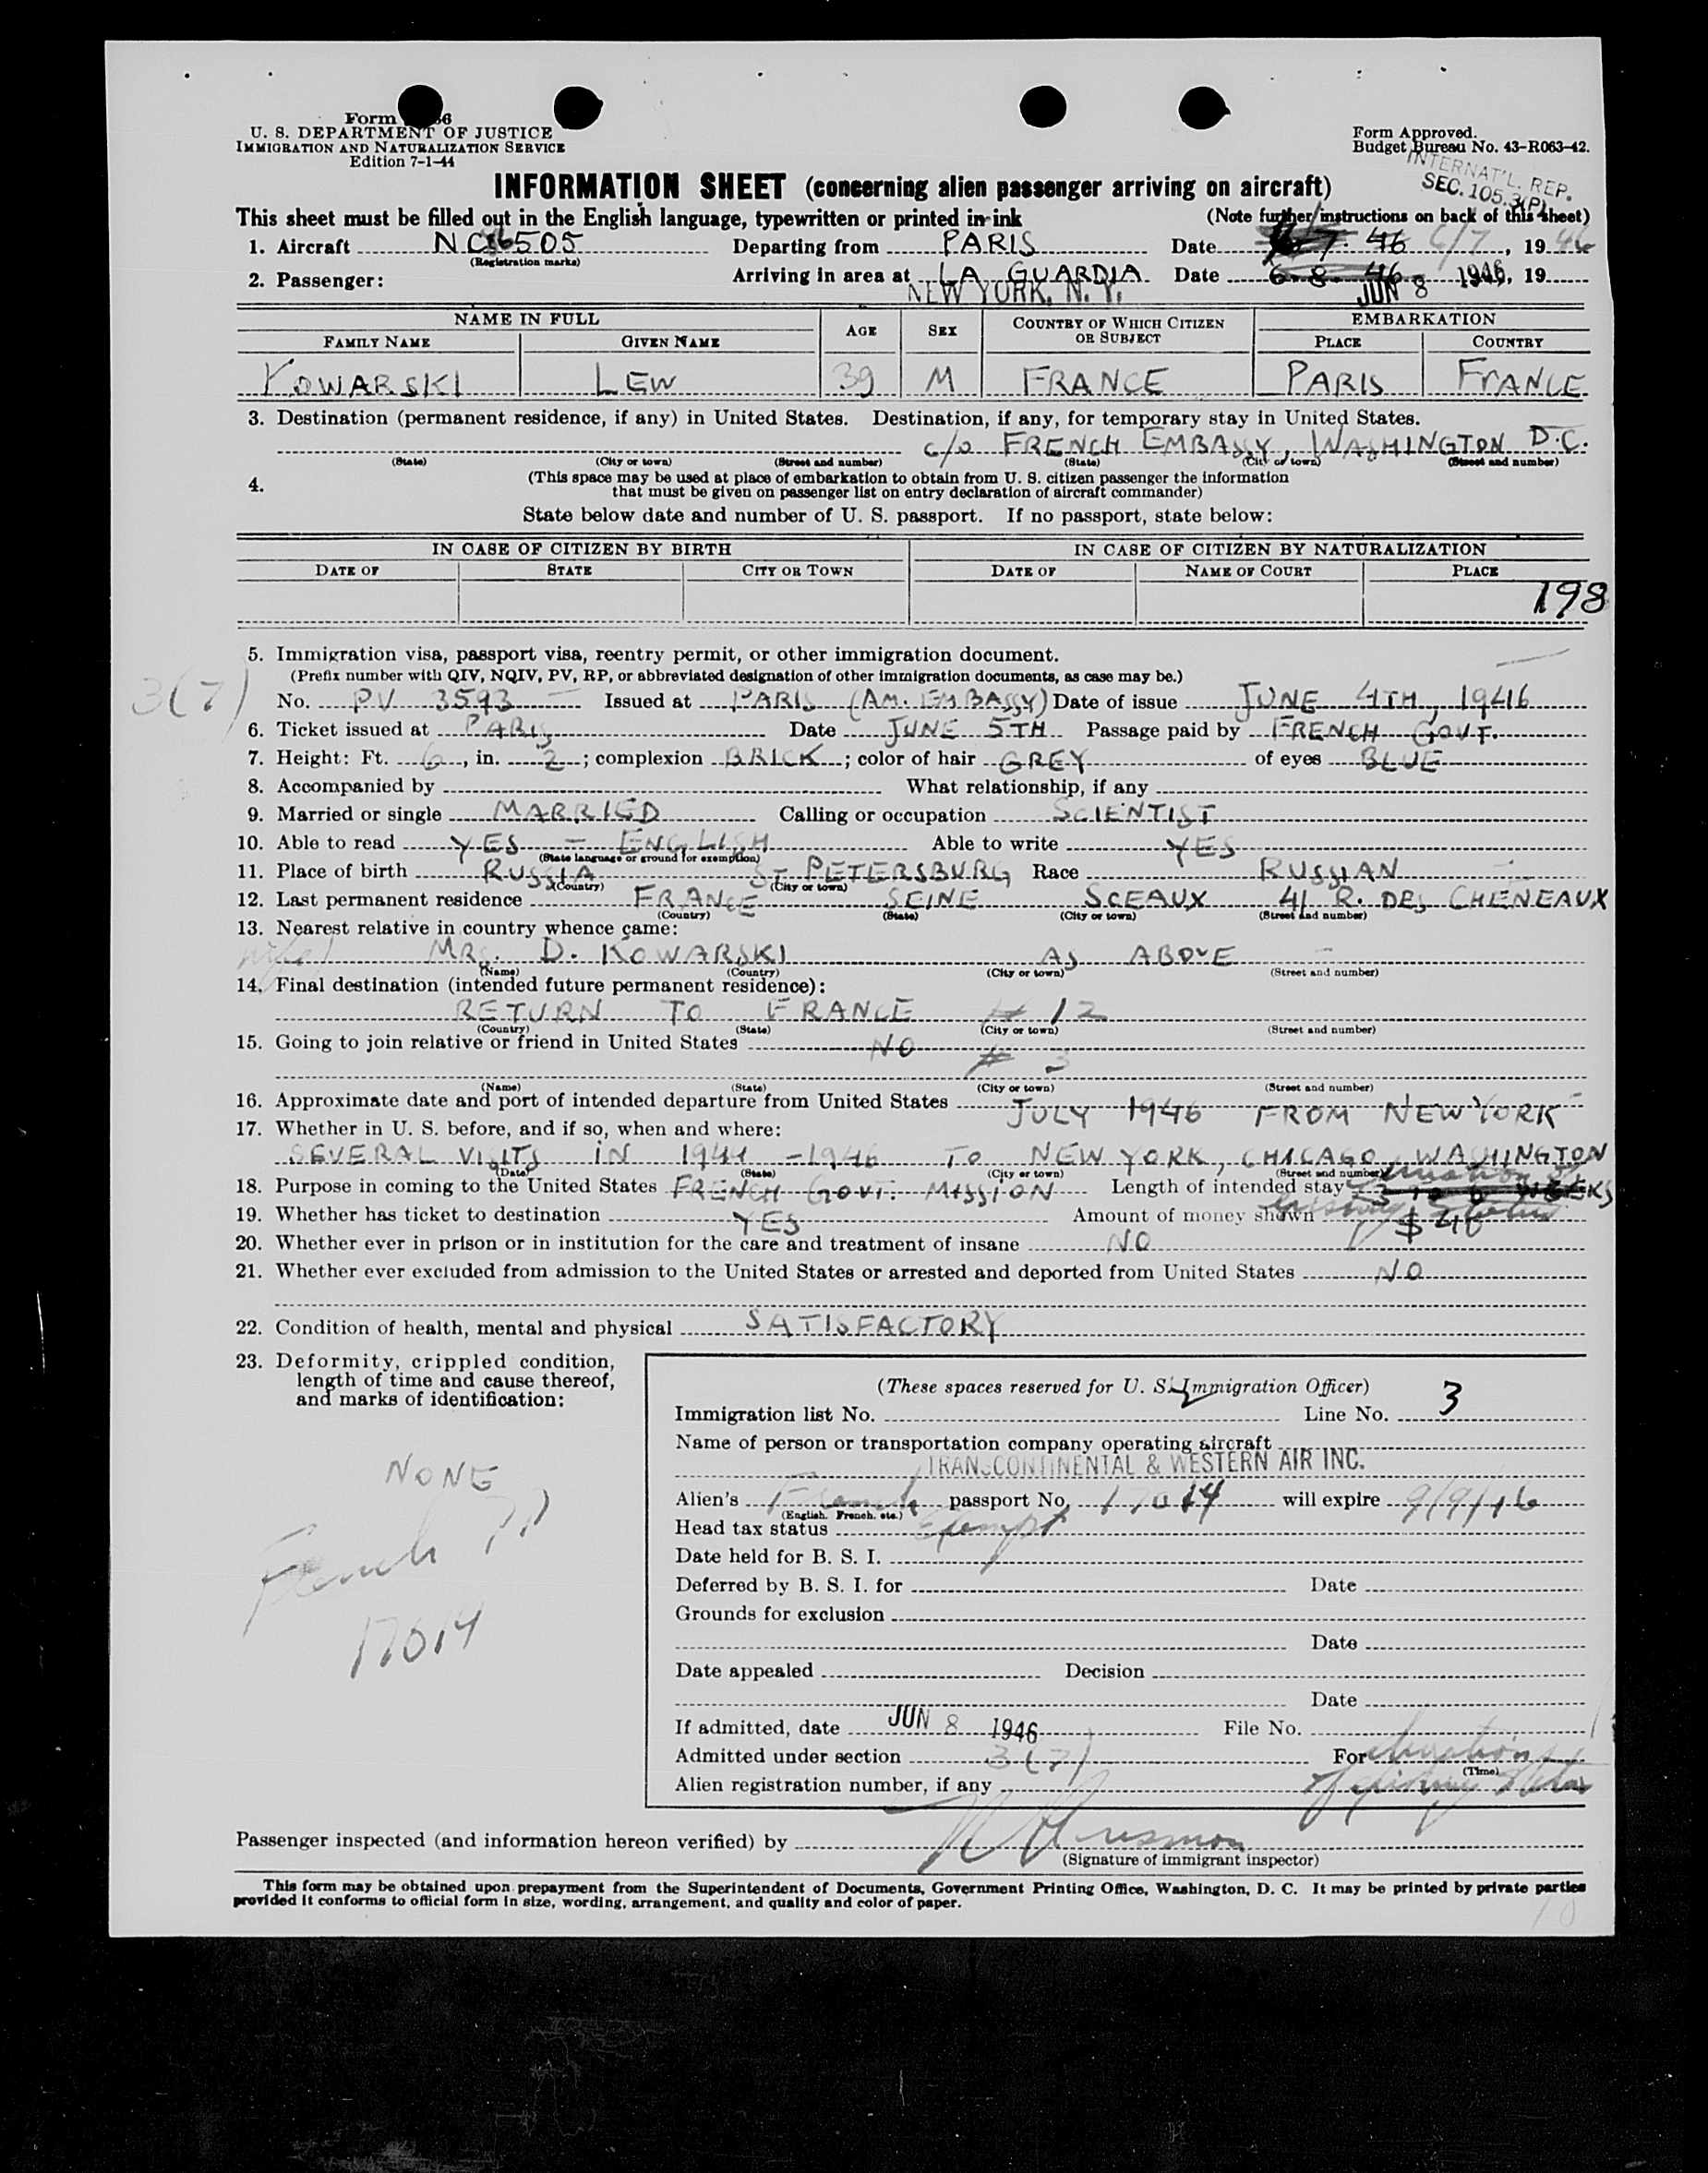 Form 6
U. S. DEPARTMENT OF JUSTICE
IMMIGRATION AND NATURALIZATION SERVICE
Edition 7-1-44
Form Approved.
Budget Bureau No. 43-R063-42.
INTERNAT'L. REP.
SEC. 105.3(P)
INFORMATION SHEET (concerning alien passenger arriving on aircraft)
This sheet must be filled out in the English language, typewritten or printed in ink (Note further instructions on back of this sheet)
1. Aircraft NC 86505 Departing from PARIS Date 7. 46 6/7, 1946
(Registration marks)
2. Passenger: Arriving in area at LA GUARDIA Date 6.8.46 , 19
NEW YORK, N. Y. JUN 8 1946
NAME IN FULL AGE SEX COUNTRY OF WHICH CITIZEN OR SUBJECT EMBARKATION
FAMILY NAME GIVEN NAME PLACE COUNTRY
KOWARSKI LEW 39 M FRANCE PARIS FRANCE
3. Destination (permanent residence, if any) in United States. Destination, if any, for temporary stay in United States.
c/o FRENCH EMBASSY, WASHINGTON D.C.
(State) (City or town) (Street and number) (State) (City or town) (Street and number)
4. (This space may be used at place of embarkation to obtain from U. S. citizen passenger the information
that must be given on passenger list on entry declaration of aircraft commander)
State below date and number of U. S. passport. If no passport, state below:
IN CASE OF CITIZEN BY BIRTH IN CASE OF CITIZEN BY NATURALIZATION
DATE OF STATE CITY OR TOWN DATE OF NAME OF COURT PLACE
198
5. Immigration visa, passport visa, reentry permit, or other immigration document.
(Prefix number with QIV, NQIV, PV, RP, or abbreviated designation of other immigration documents, as case may be.)
3(7) No. PV 3593 Issued at PARIS (AM. EMBASSY) Date of issue JUNE 4TH, 1946
6. Ticket issued at PARIS Date JUNE 5TH Passage paid by FRENCH GOVT.
7. Height: Ft. 6, in. 2; complexion BRICK; color of hair GREY of eyes BLUE
8. Accompanied by What relationship, if any
9. Married or single MARRIED Calling or occupation SCIENTIST
10. Able to read YES - ENGLISH Able to write YES
(State language or ground for exemption)
11. Place of birth RUSSIA ST PETERSBURG Race RUSSIAN
(Country) (City or town)
12. Last permanent residence FRANCE SEINE SCEAUX 41 R. DES CHENEAUX
(Country) (State) (City or town) (Street and number)
13. Nearest relative in country whence came:
wife MRS. D. KOWARSKI AS ABOVE
(Name) (Country) (City or town) (Street and number)
14. Final destination (intended future permanent residence):
RETURN TO FRANCE # 12
(Country) (State) (City or town) (Street and number)
15. Going to join relative or friend in United States NO
# 3
(Name) (State) (City or town) (Street and number)
16. Approximate date and port of intended departure from United States JULY 1946 FROM NEW YORK
17. Whether in U. S. before, and if so, when and where:
SEVERAL VISITS IN 1944 - 1946 TO NEW YORK, CHICAGO, WASHINGTON
(Date) (State) (City or town) (Street and number)
18. Purpose in coming to the United States FRENCH GOVT. MISSION Length of intended stay WEEKS
19. Whether has ticket to destination YES Amount of money shown $ 40
20. Whether ever in prison or in institution for the care and treatment of insane NO
21. Whether ever excluded from admission to the United States or arrested and deported from United States NO
22. Condition of health, mental and physical SATISFACTORY
23. Deformity, crippled condition,
length of time and cause thereof,
and marks of identification:
NONE
French PP
17014
(These spaces reserved for U. S. Immigration Officer)
Immigration list No. Line No. 3
Name of person or transportation company operating aircraft
TRANSCONTINENTAL & WESTERN AIR INC.
Alien's French passport No. 17014 will expire 9/9/46
(English, French, etc.)
Head tax status Exempt
Date held for B. S. I.
Deferred by B. S. I. for Date
Grounds for exclusion
Date
Date appealed Decision
Date
If admitted, date JUN 8 1946 File No.
Admitted under section 3(7) For duration
(Time)
Alien registration number, if any of
Passenger inspected (and information hereon verified) by
(Signature of immigrant inspector)
This form may be obtained upon prepayment from the Superintendent of Documents, Government Printing Office, Washington, D. C. It may be printed by private parties
provided it conforms to official form in size, wording, arrangement, and quality and color of paper.